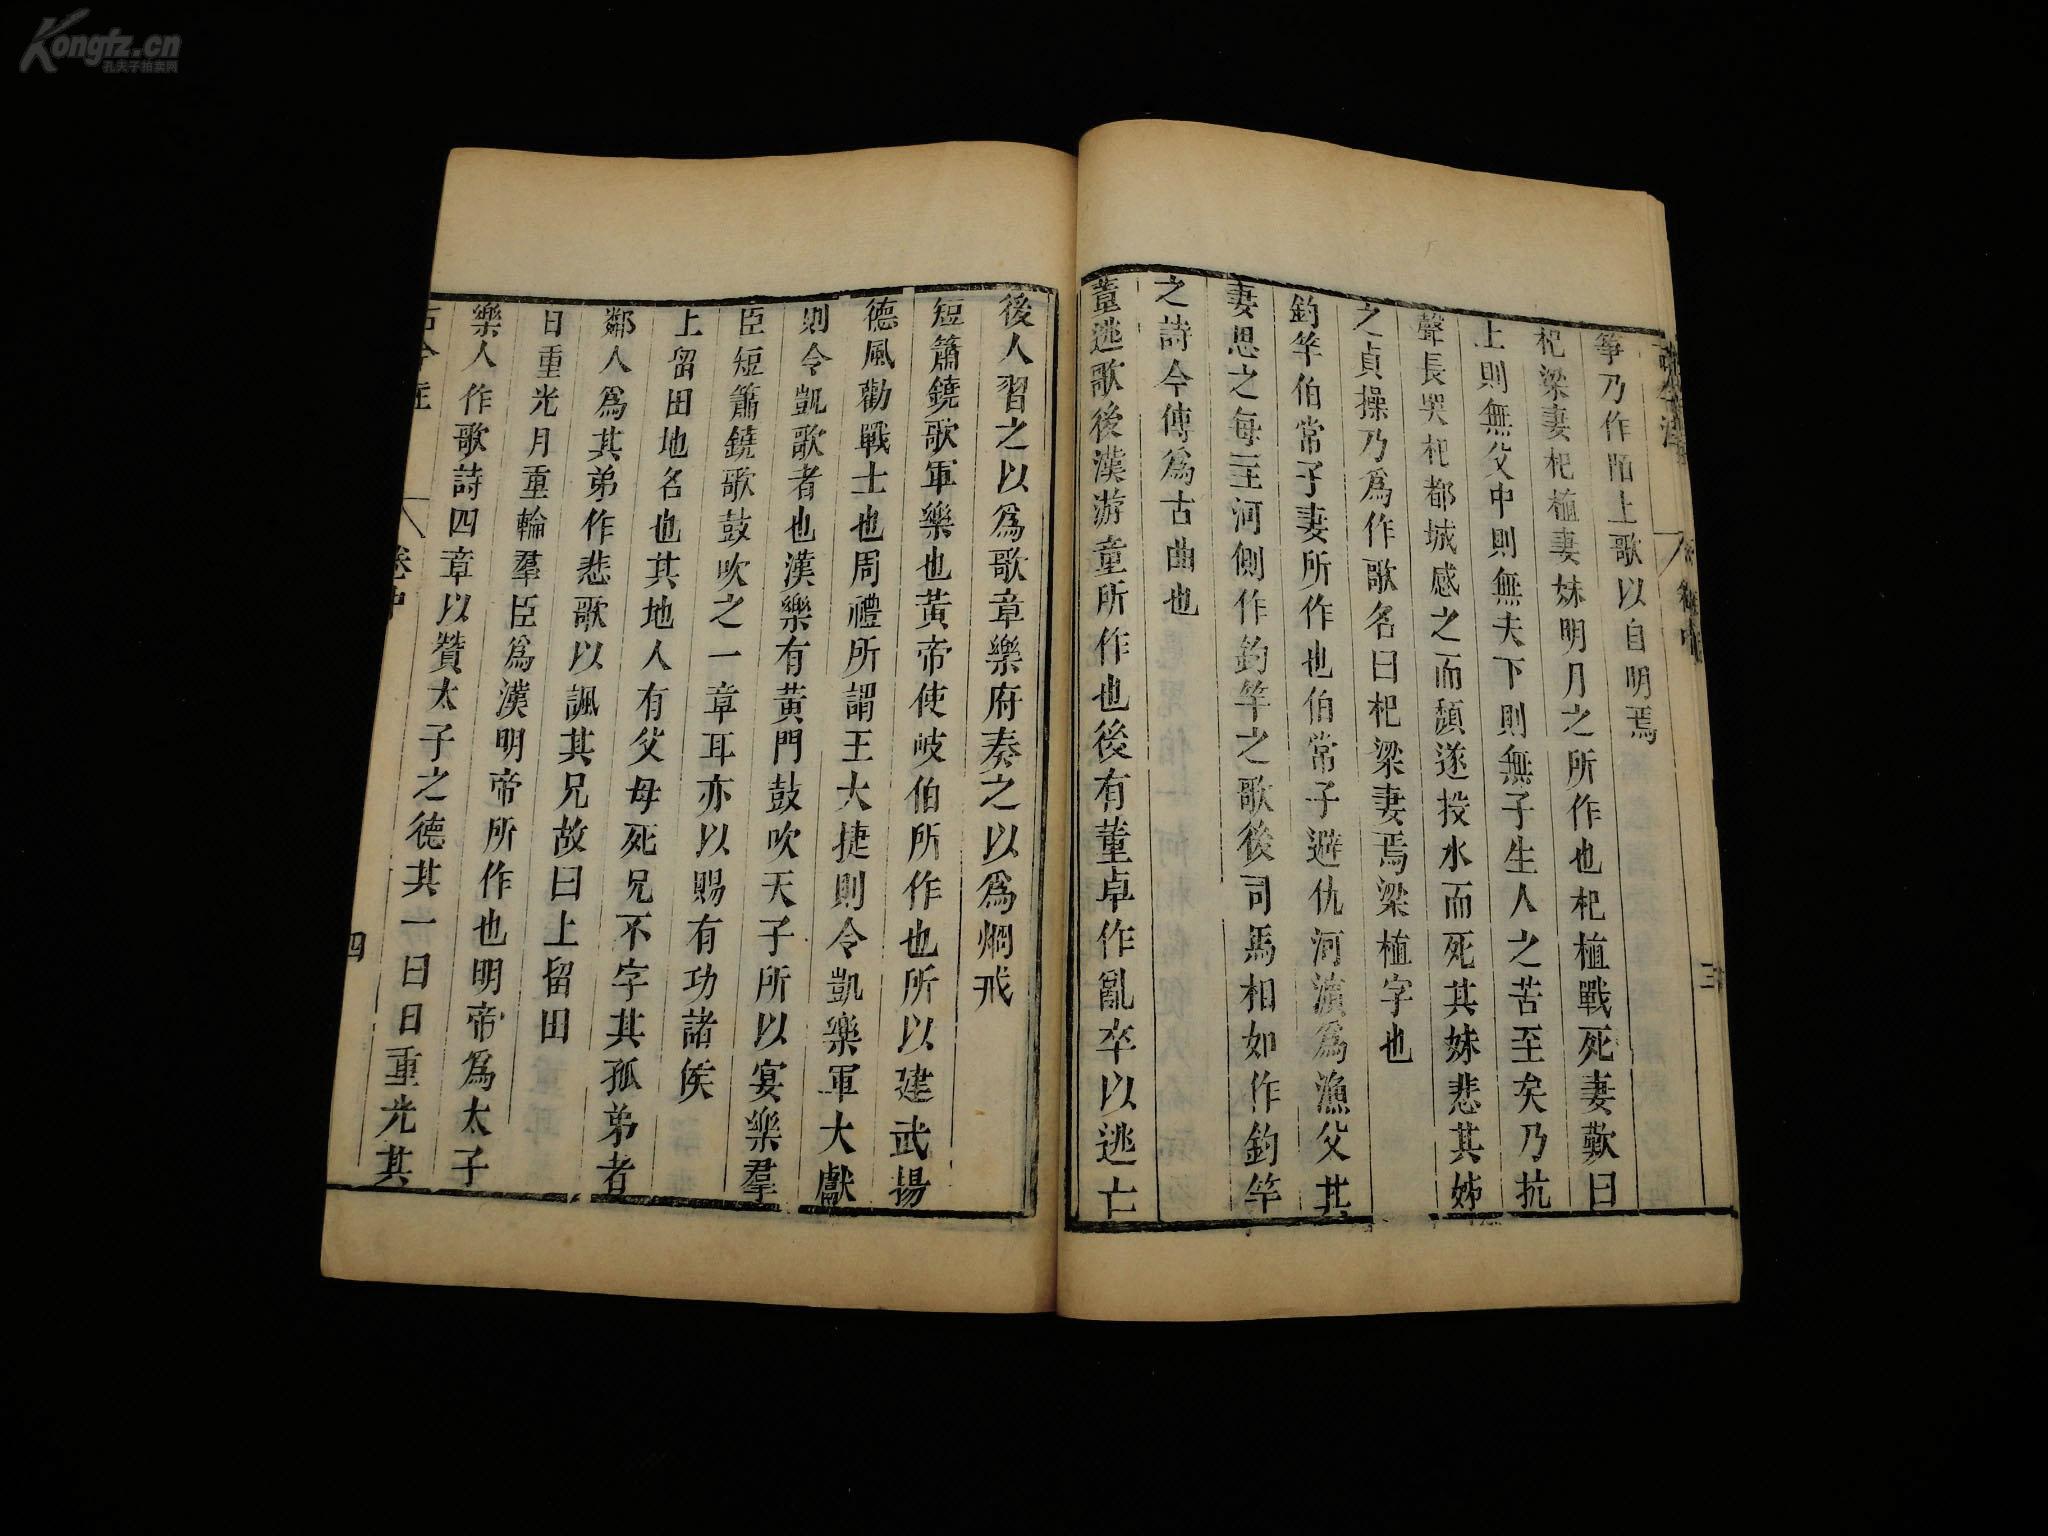 Kongfz.cn
孔夫子拍卖网
箏乃作陌上歌以自明焉
杞梁妻杞植妻妹明月之所作也杞植戰死妻歎曰
上則無父中則無夫下則無子生人之苦至矣乃抗
聲長哭杞都城感之而頹遂投水而死其妹悲其姊
之貞操乃爲作歌名曰杞梁妻焉梁植字也
釣竿伯常子妻所作也伯常子避仇河濵爲漁父其
妻思之每至河側作釣竿之歌後司馬相如作釣竿
之詩今傳爲古曲也
董逃歌後漢游童所作也後有董卓作亂卒以逃亡
後人習之以爲歌章樂府奏之以爲烱戒
短簫鐃歌軍樂也黃帝使岐伯所作也所以建武揚
德風勸戰士也周禮所謂王大捷則令凱樂軍大獻
則令凱歌者也漢樂有黃門鼓吹天子所以宴樂羣
臣短簫鐃歌鼓吹之一章耳亦以賜有功諸侯
上留田地名也其地人有父母死兄不字其孤弟者
鄰人爲其弟作悲歌以諷其兄故曰上留田
日重光月重輪羣臣爲漢明帝所作也明帝爲太子
樂人作歌詩四章以贊太子之德其一曰日重光其
古今注
卷中
四